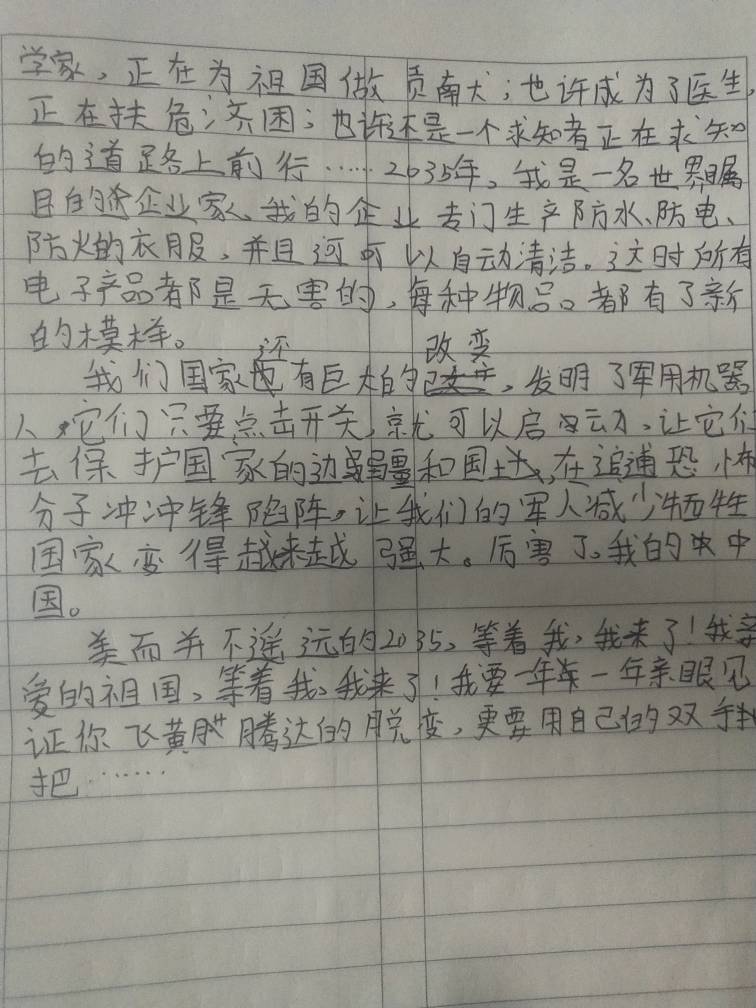 学家，正在为祖国做贡献；也许成为了医生，
正在扶危济困；也许还是一个求知者正在求知
的道路上前行……2035年，我是一名世界瞩
目的企业家、我的企业专门生产防水、防电、
防火的衣服，并且还可以自动清洁。这时所有
电子产品都是无害的，每种物品。都有了新
的模样。
还 改变
我们国家有巨大的，发明了军用机器
人，它们只要点击开关，就可以启动，让它们
去保护国家的边疆和国土，在追逋恐怖
分子冲冲锋陷阵，让我们的军人减少牺牲
国家变得越来越强大。厉害了。我的中
国。
美而并不遥远的2035，等着我，我来了！我亲
爱的祖国，等着我，我来了！我要一年一年亲眼见
证你飞黄腾达的脱变，更要用自己的双手
把……